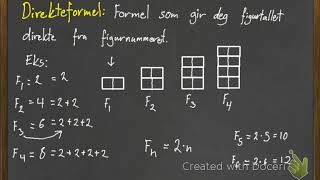 Direkteformel: Formel som gir deg figurtallet
direkte fra figurnummeret.
Eks:
F₁ = 2 = 2
F₂ = 4 = 2+2
F₃ = 6 = 2+2+2
F₄ = 8 = 2+2+2+2
F₁ F₂ F₃ F₄
Fₙ = 2·n
F₅ = 2·5 = 10
F₆ = 2·6 = 12
Created with Doceri